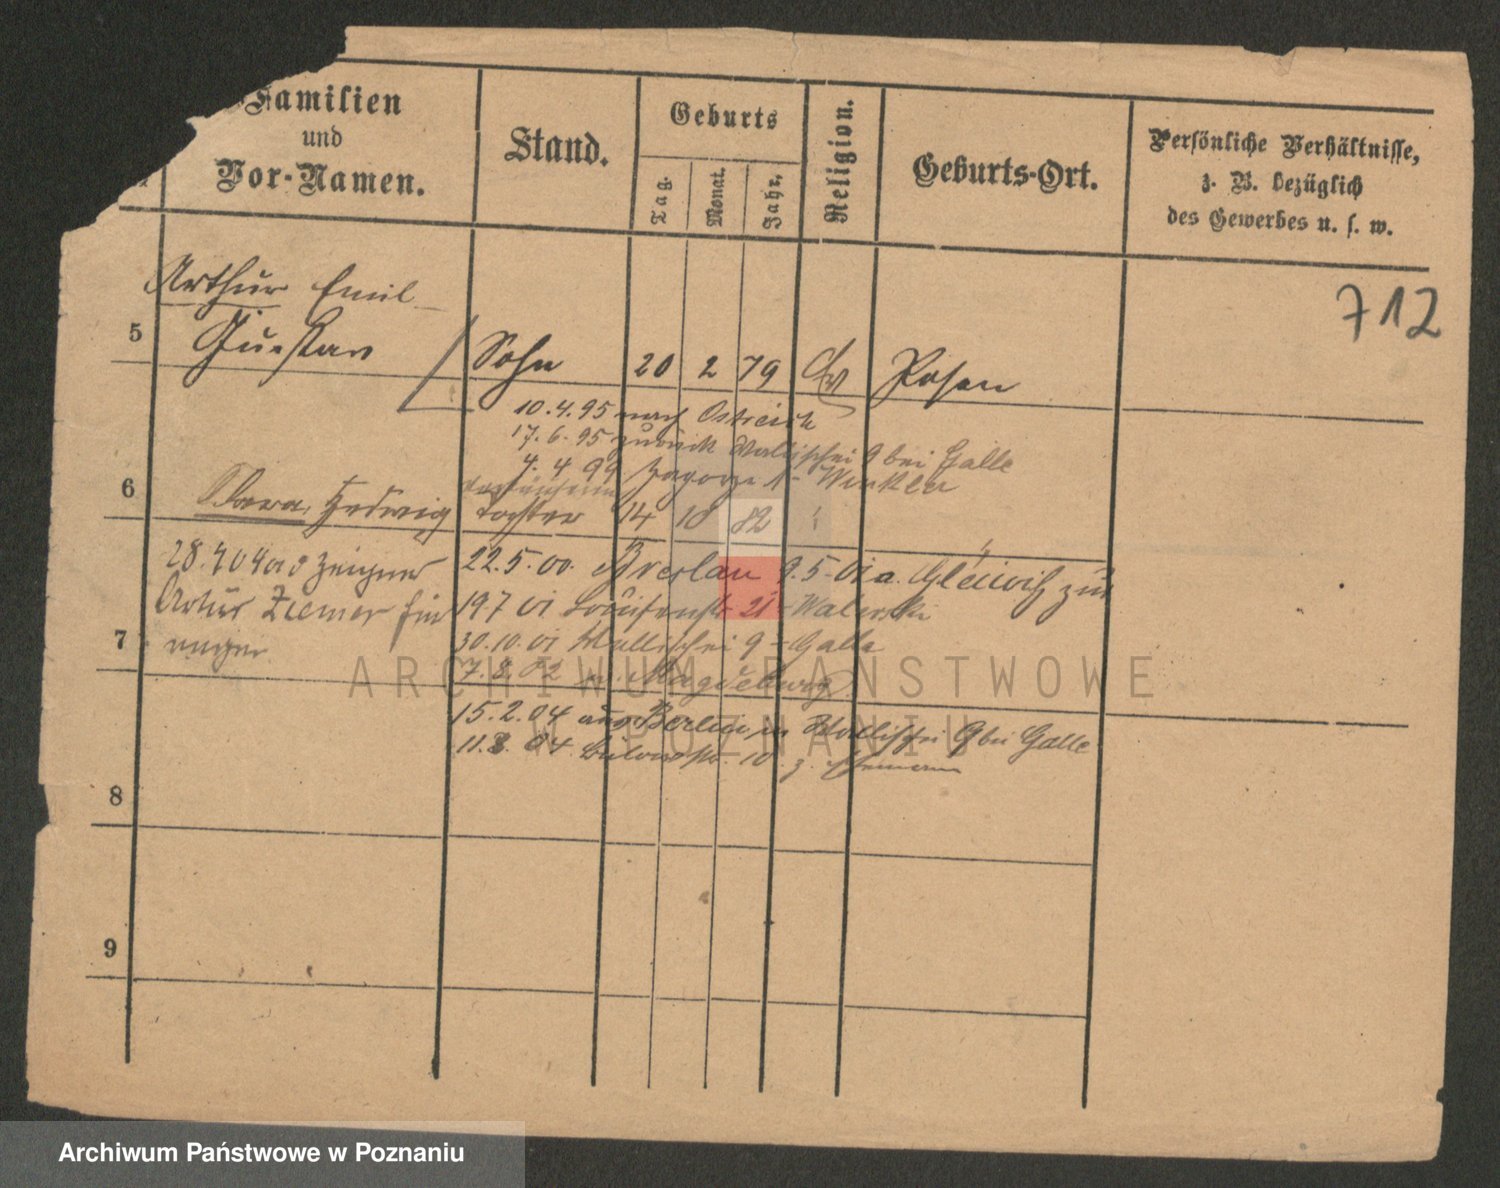 Familien
und
Vor-Namen.
Stand.
Geburts
Tag.
Monat.
Jahr.
Religion.
Geburts-Ort.
Persönliche Verhältnisse,
z. B. bezüglich
des Gewerbes u. s. w.
712
Arthur Emil
5 Gustav Sohn 20 2 79 Ev Posen
10.4.95 nach Ostreich
17.6.95 zurück Wallischei 9 bei Galle
4.4 99 Zagorze Winkler
6 Clara Hedwig Tochter 14 10 82
28.4 04 Zeigner 22.5.00. Breslau 9.5.01 a. Gleiwitz zur
Artur Ziemer 19.7 01 Louisenstr 21 - Walenski
7 30.10.01 Wallischei 9 - Galle
7.8.02 n. Magdeburg
15.2.04 aus Berlin Wallischei 9 bei Galle
11.8.04 Bülowstr. 10
8
9
ARCHIWUM PAŃSTWOWE
W POZNANIU
Archiwum Państwowe w Poznaniu